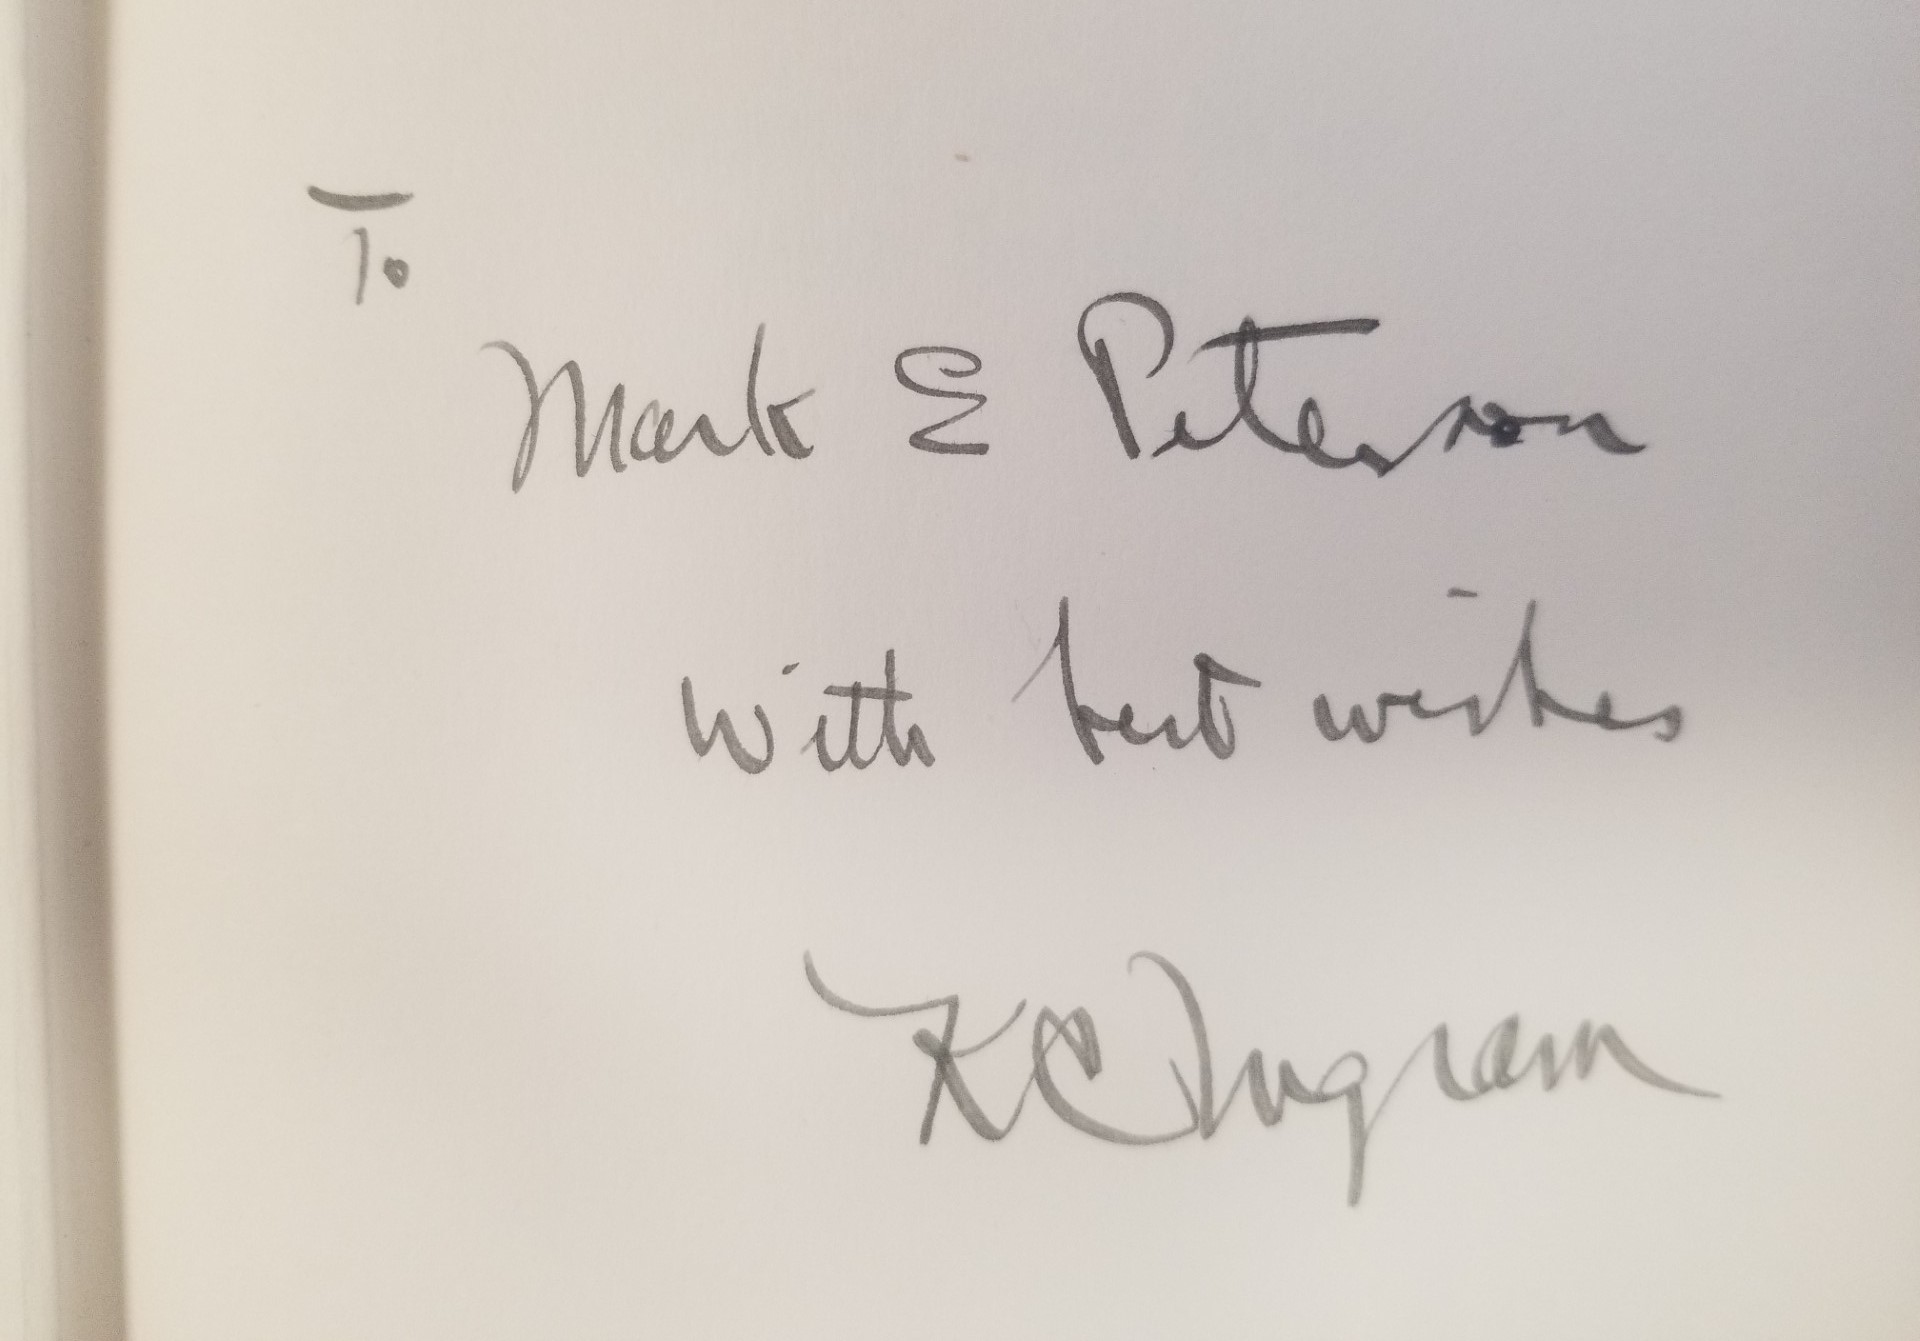 To
Mark E Peterson
with best wishes
K C Ingram